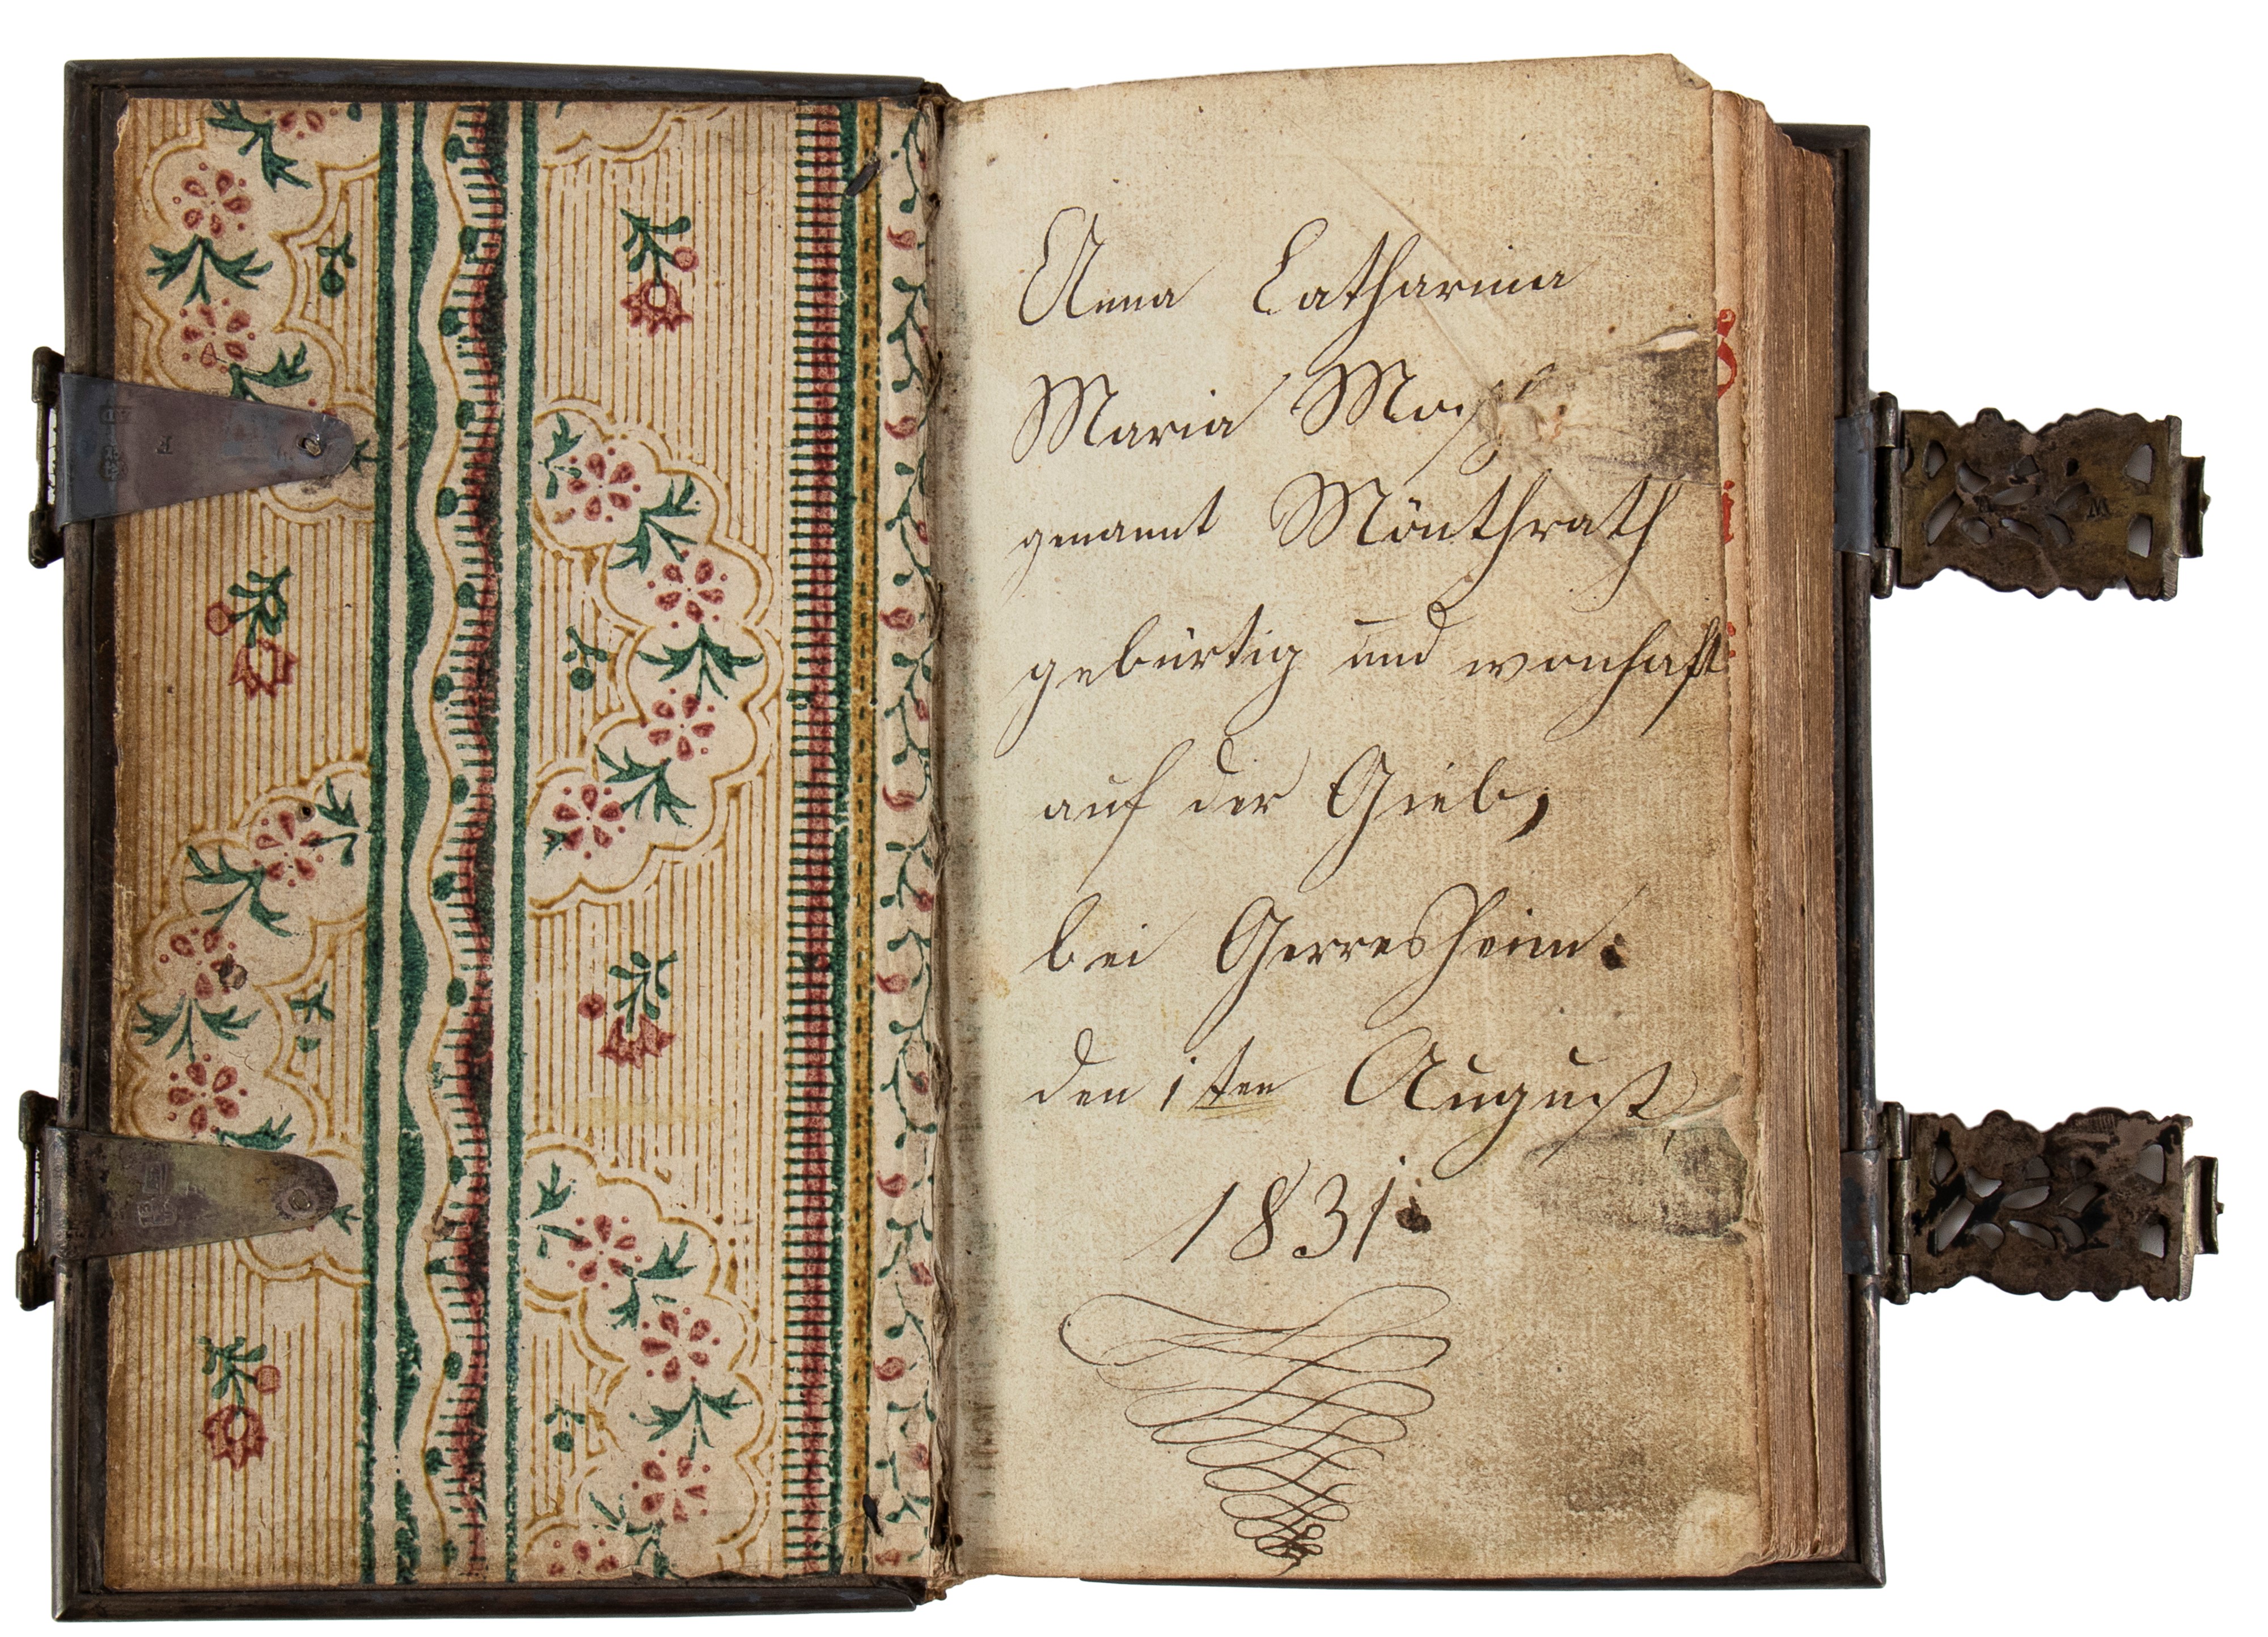 Anna Catharina
Maria
genannt Mönthrath
gebürtig und wonhaft
auf der Gieb,
bei Gerresheim.
den 1ten August
1831.